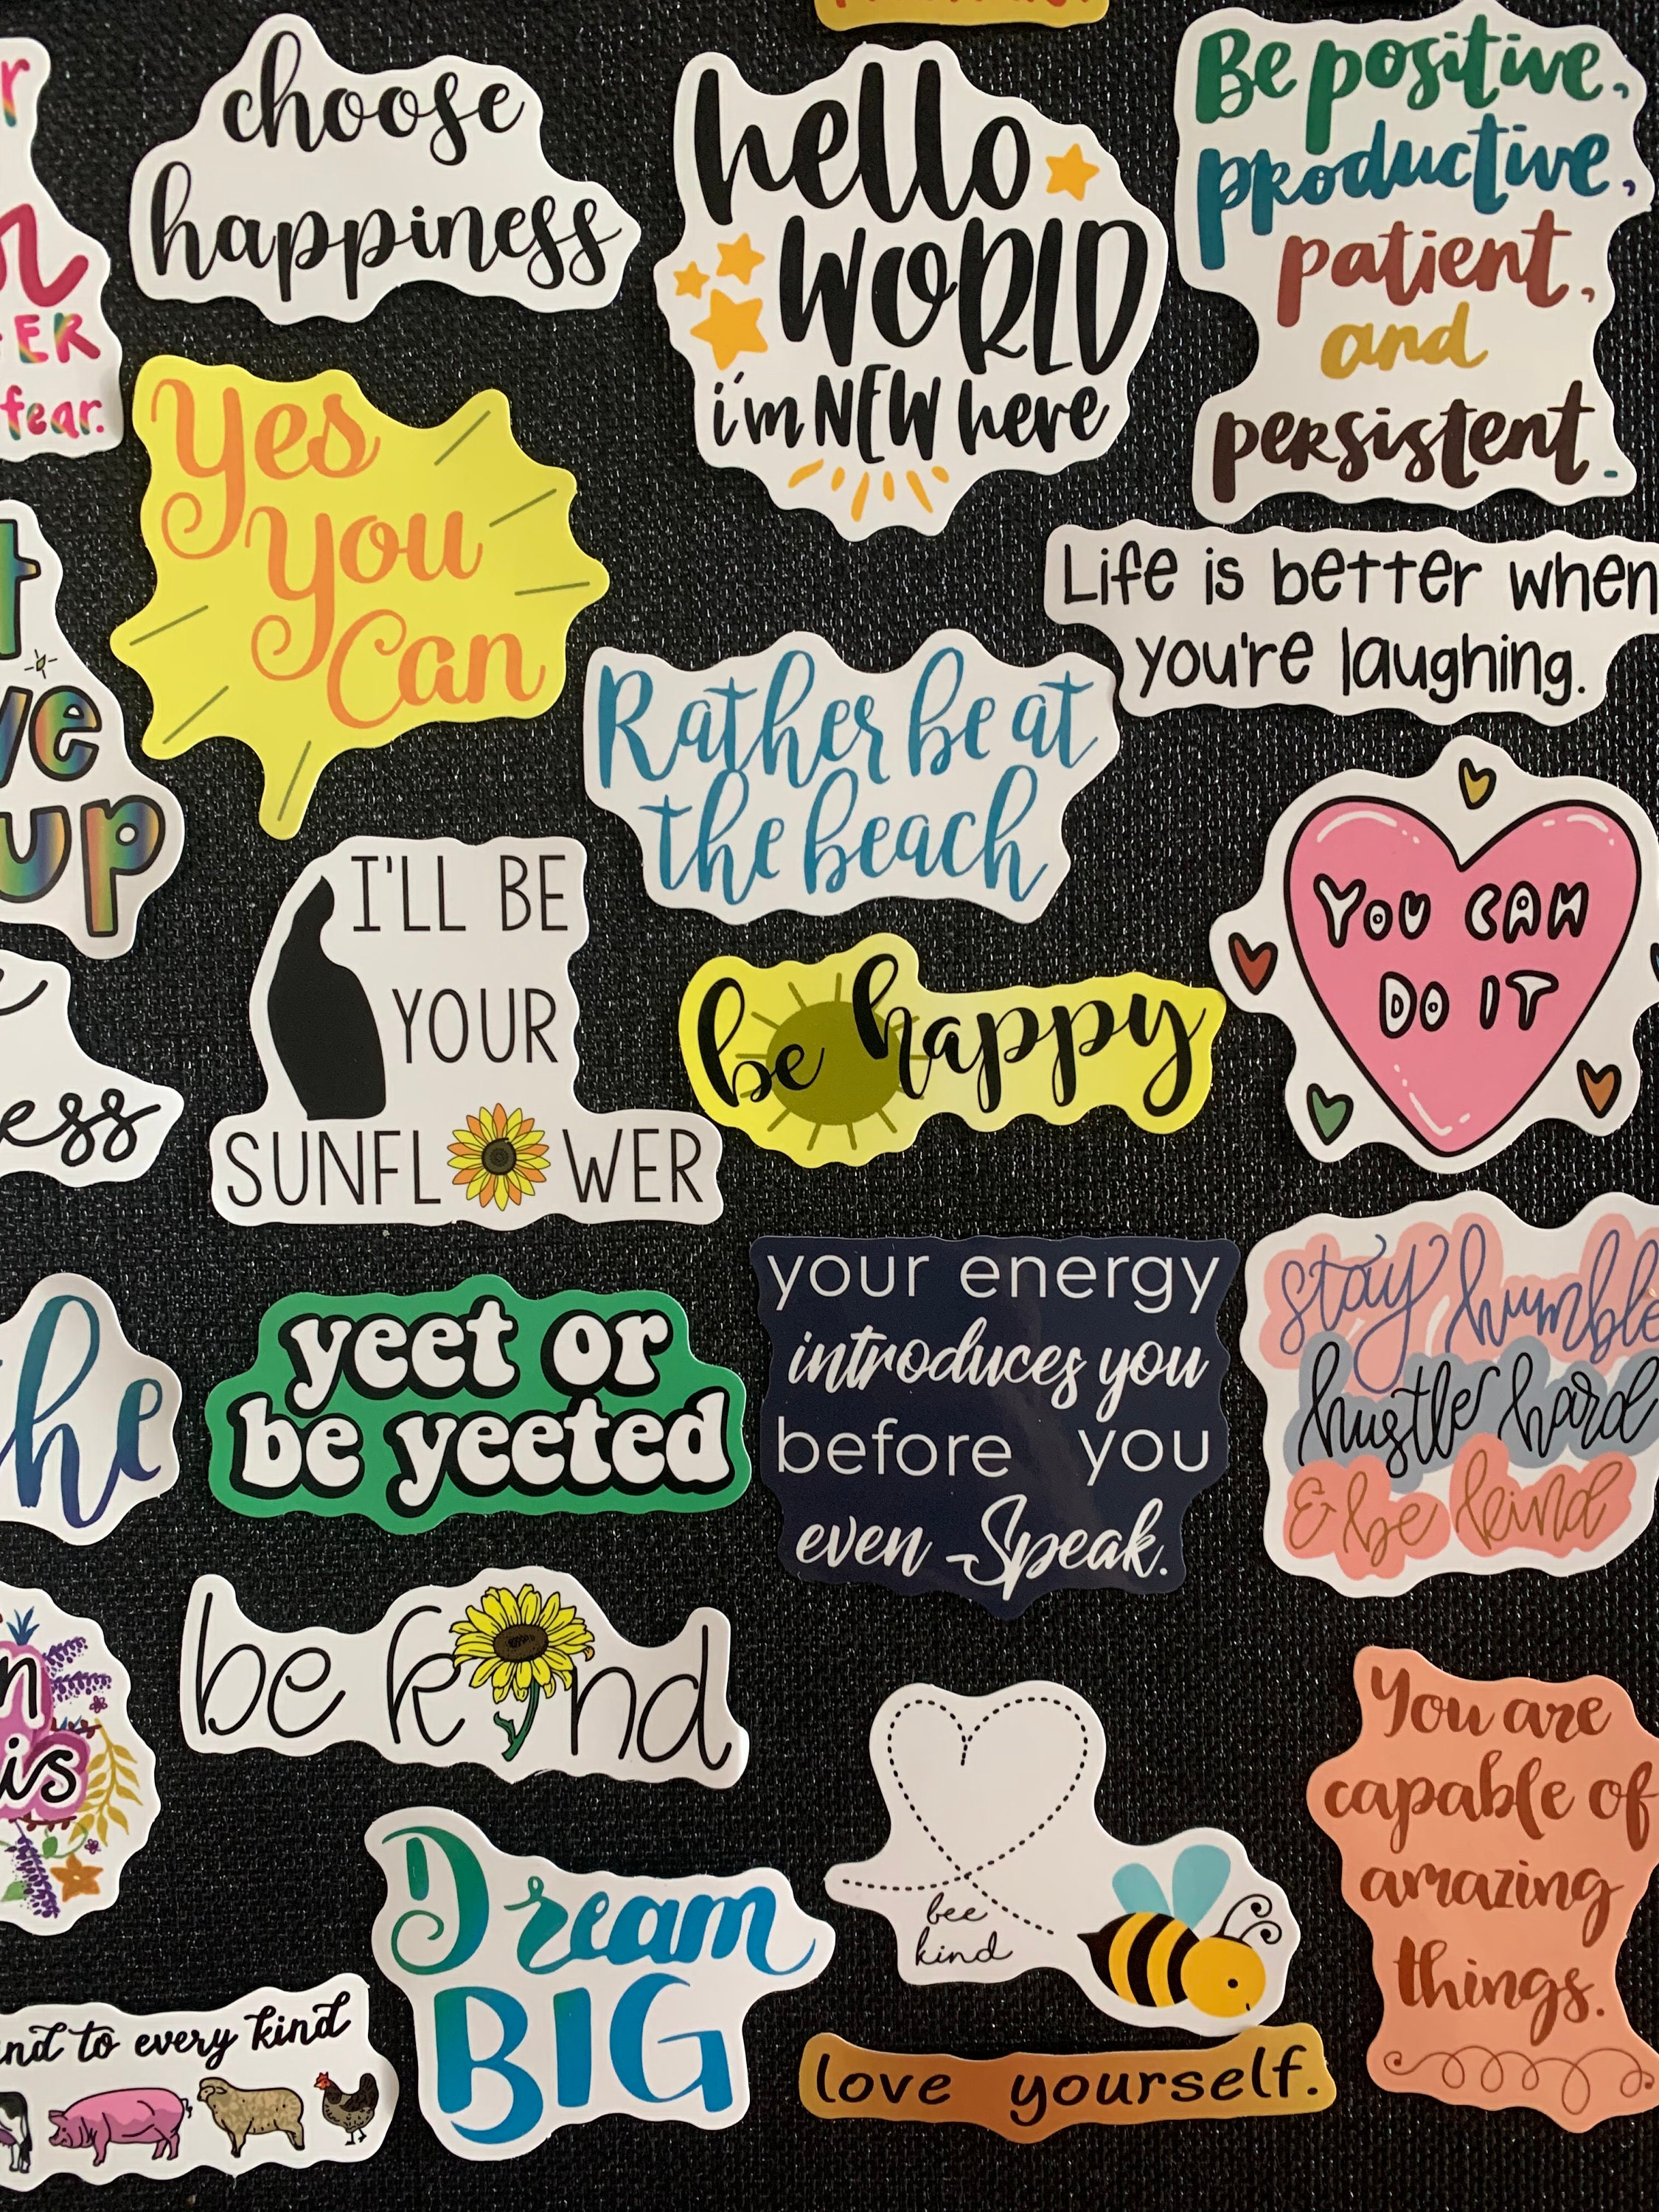 choose
happiness
hello
WORLD
i'm NEW here
Be positive,
productive,
patient,
and
persistent.
ER
fear.
Yes
You
Can
Life is better when
you're laughing.
Rather be at
the beach
up
I'LL BE
YOUR
SUNFLOWER
be happy
YOU CAN
DO IT
ess
he
yeet or
be yeeted
your energy
introduces you
before you
even Speak.
stay humble
hustle hard
& be kind
be kind
is
You are
capable of
amazing
things.
bee
kind
Dream
BIG
to every kind
love yourself.